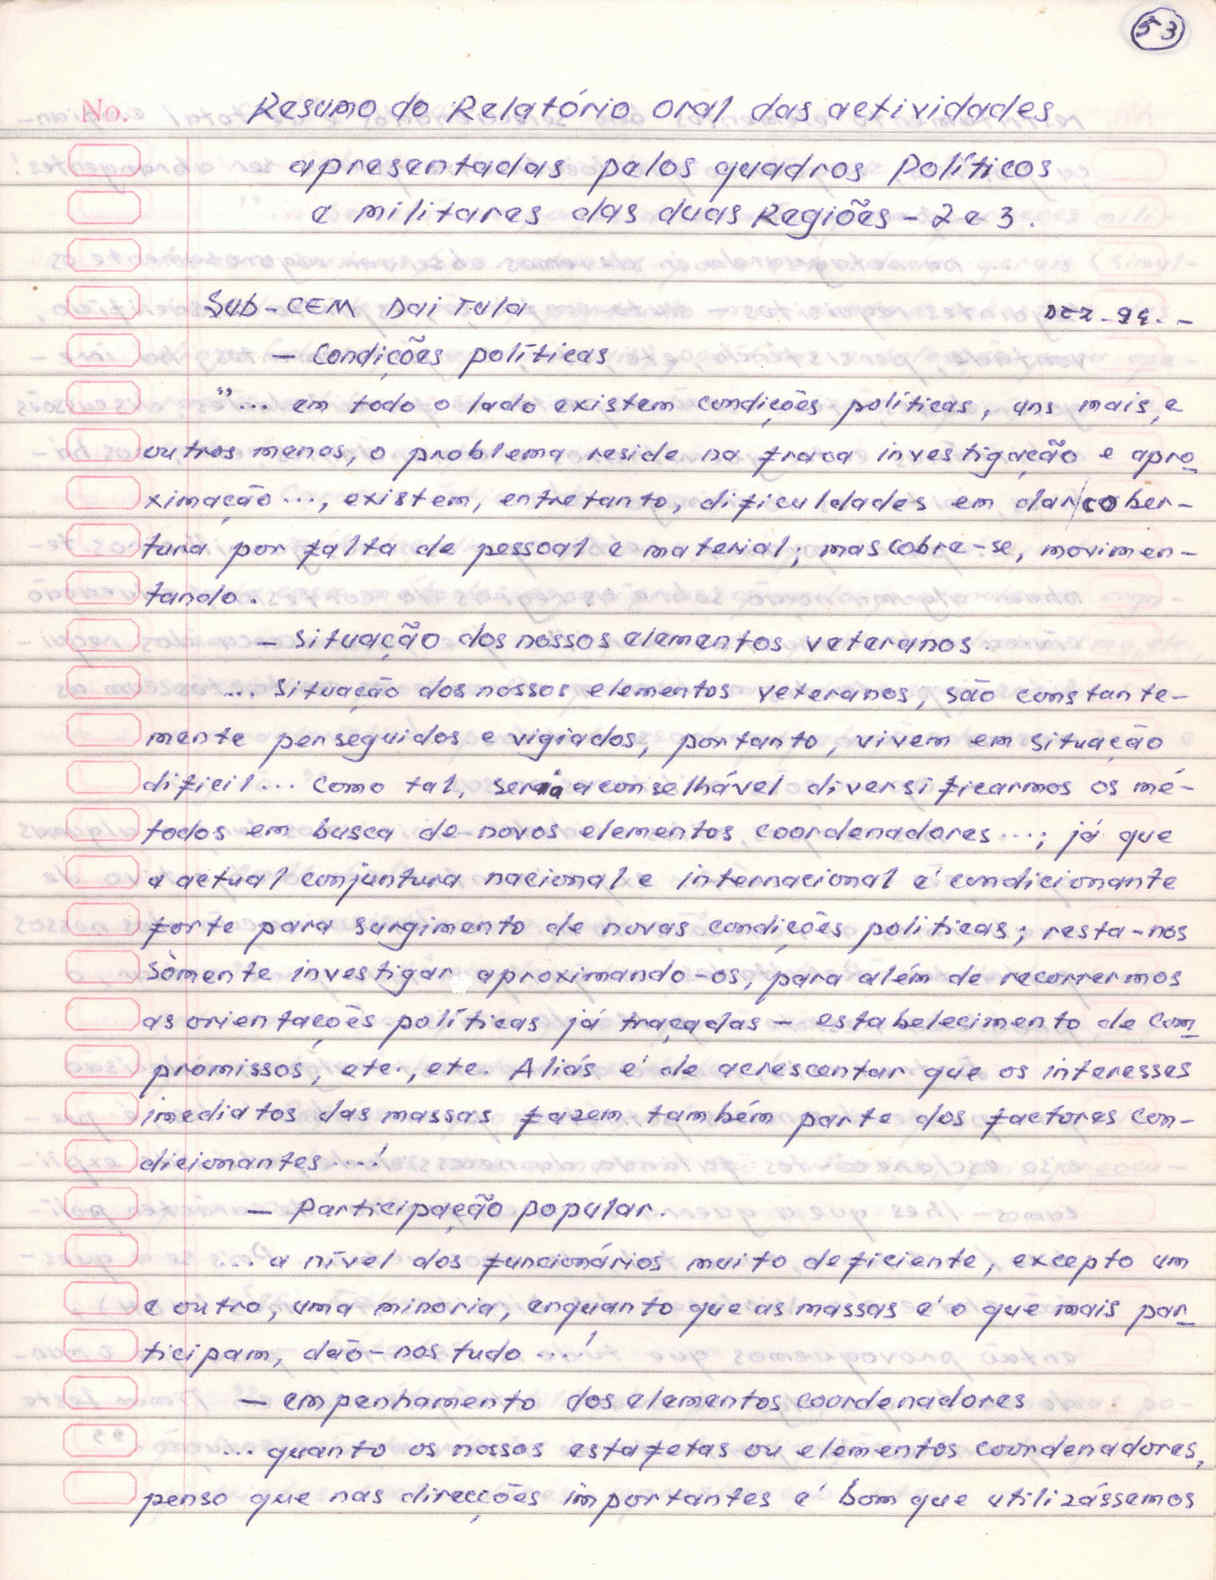 53
No.
Resumo do Relatório oral das actividades
apresentadas pelos quadros Políticos
e militares das duas Regiões - 2 e 3.
Sub-CEM Dai Tula DEZ-94.-
- Condições políticas
"... em todo o lado existem condições políticas, uns mais, e
outros menos, o problema reside na fraca investigação e apro-
ximação..., existem, entretanto, dificuldades em dar cober-
tura por falta de pessoal e material; mas cobre-se, movimen-
tando.
- Situação dos nossos elementos veteranos.
... Situação dos nossos elementos veteranos, são constante-
mente perseguidos e vigiados, portanto, vivem em situação
difícil... Como tal, seria aconselhável diversificarmos os mé-
todos em busca de novos elementos, coordenadores...; já que
a actual conjuntura nacional e internacional é condicionante
forte para surgimento de novas condições políticas; resta-nos
sòmente investigar aproximando-os, para além de recorrermos
as orientações políticas já traçadas - estabelecimento de com-
promissos, etc., etc. Aliás é de acrescentar que os interesses
imediatos das massas fazem também parte dos factores con-
dicionantes...!
- Participação popular.
... a nível dos funcionários muito deficiente, excepto um
e outro, uma minoria, enquanto que as massas é o que mais par-
ticipam, dão-nos tudo...!
- empenhamento dos elementos coordenadores
... quanto os nossos estafetas ou elementos coordenadores,
penso que nas direcções importantes é bom que utilizássemos